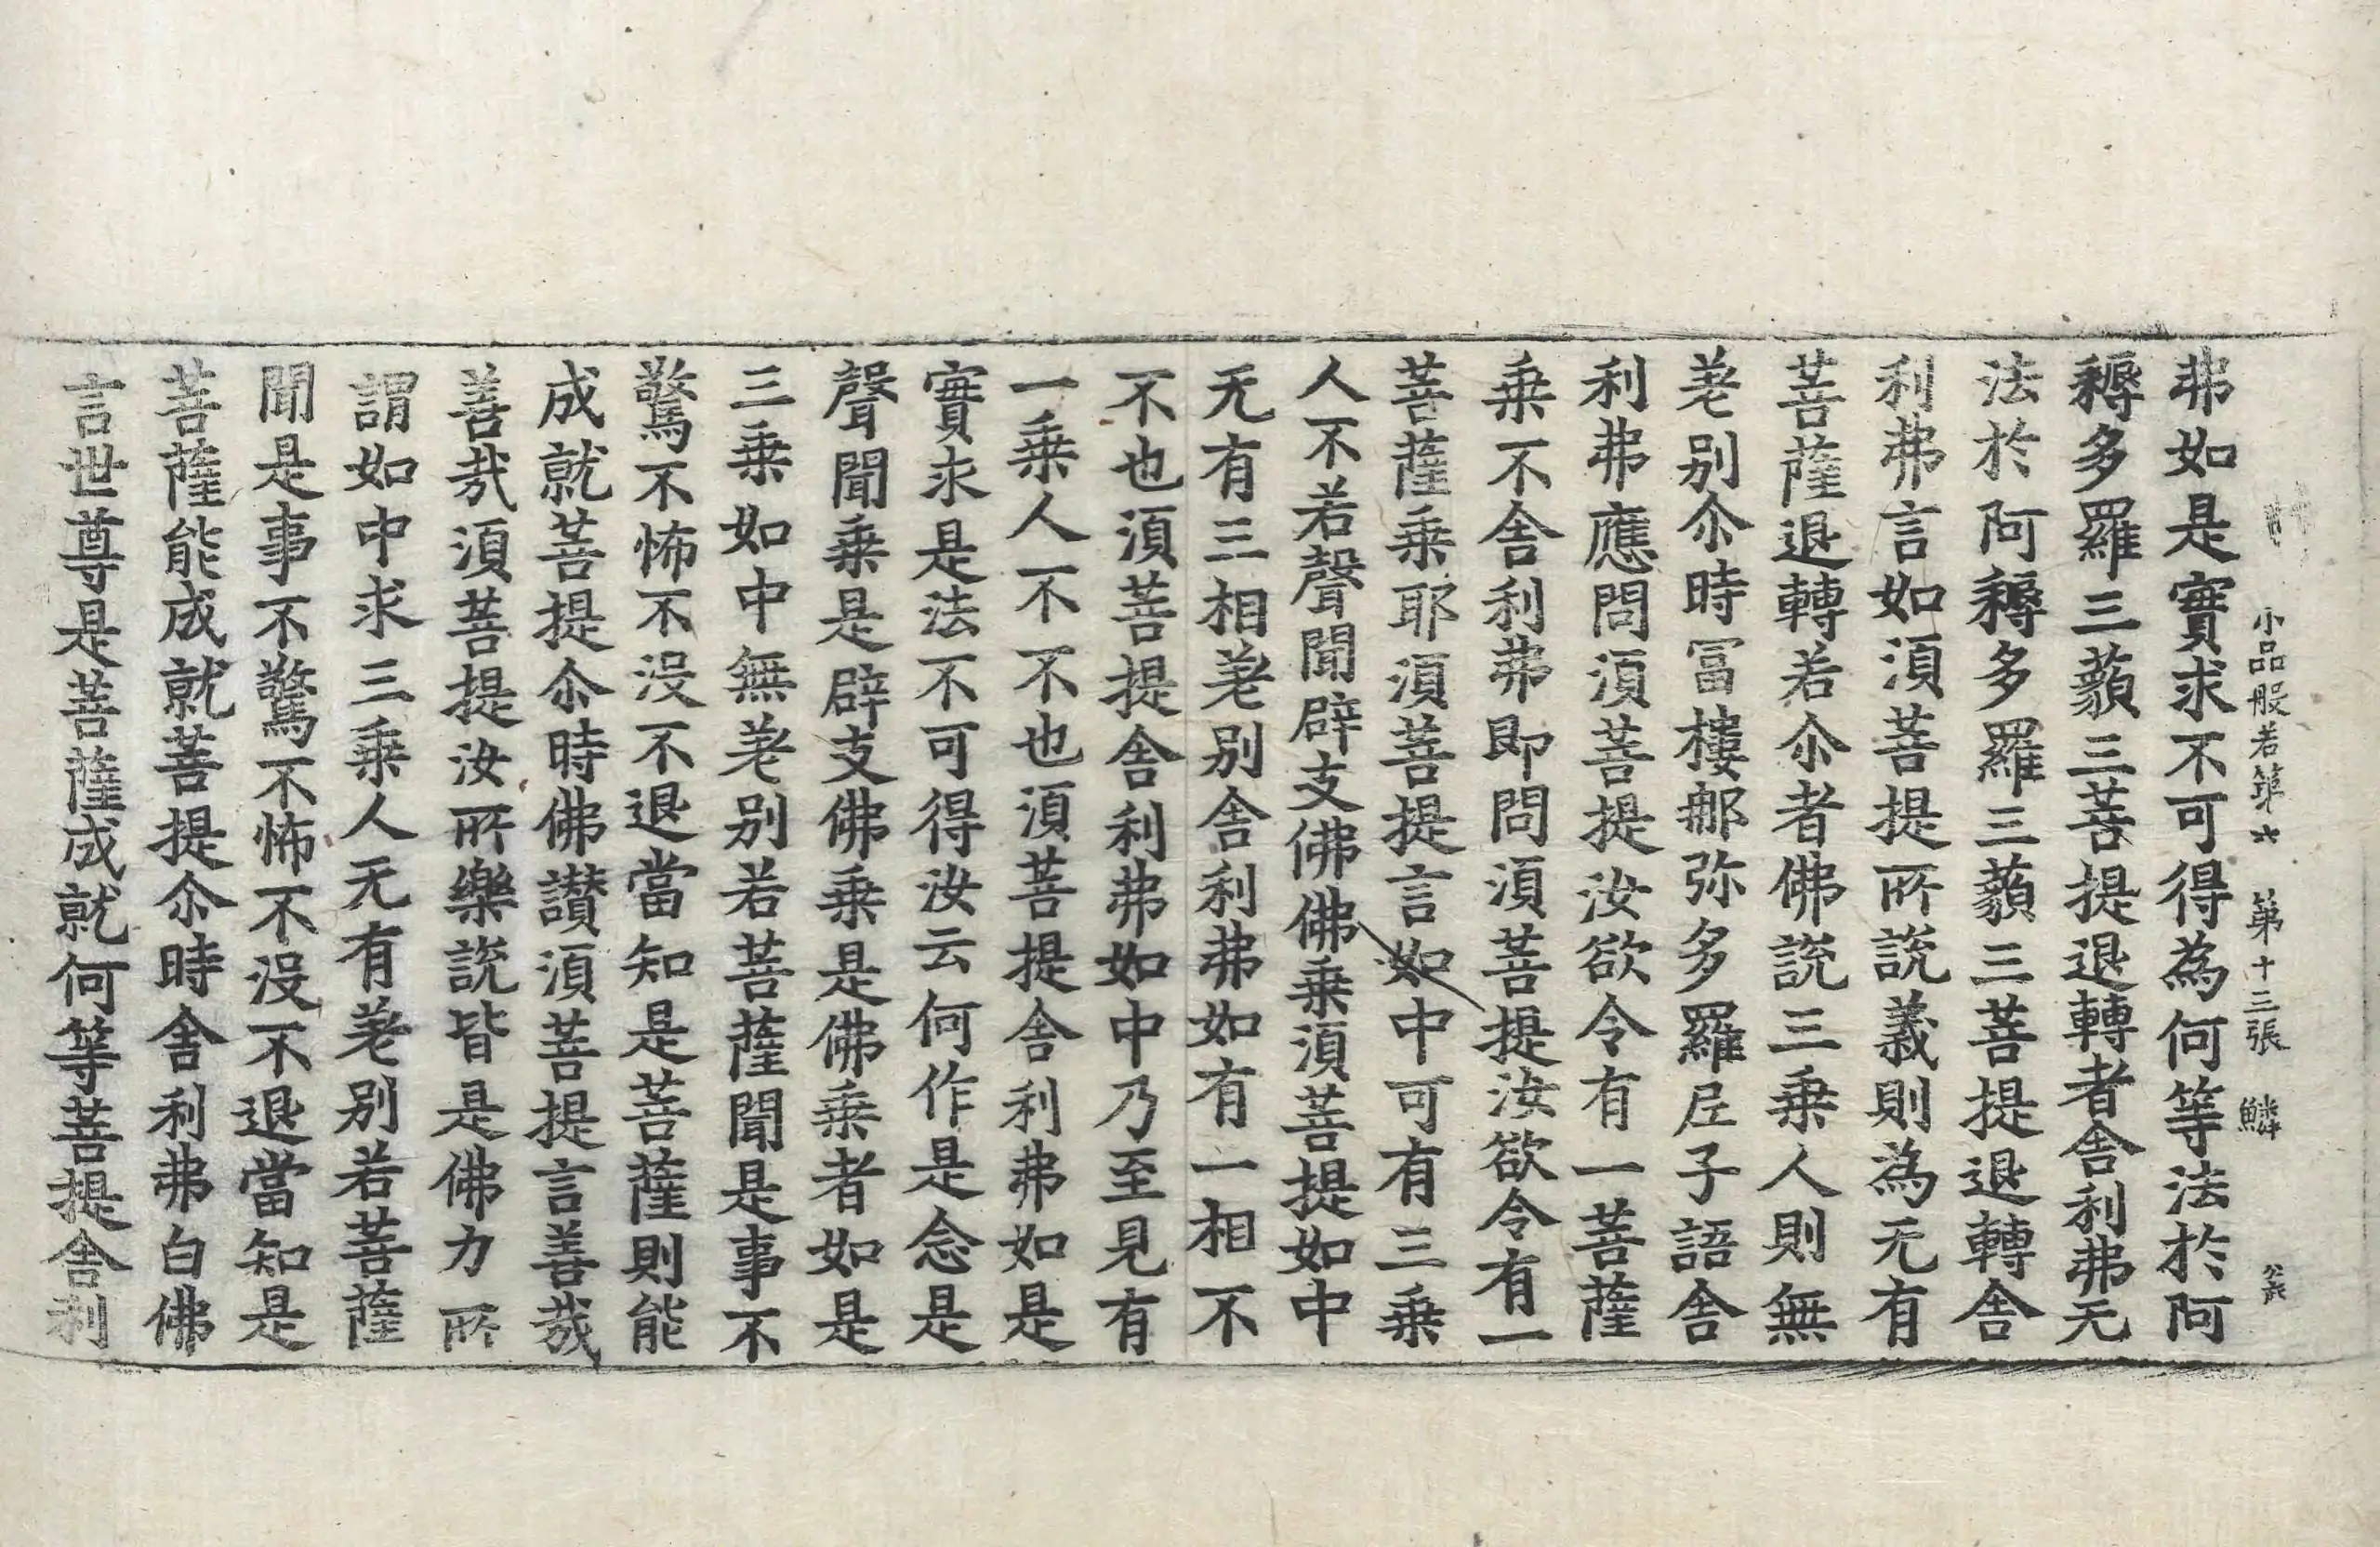 小品般若第六 第十三張 鱗
弗如是實求不可得為何等法於阿
耨多羅三藐三菩提退轉者舍利弗无
法於阿耨多羅三藐三菩提退轉舍
利弗言如須菩提所說義則為无有
菩薩退轉若尒者佛說三乘人則無
差別尒時冨樓那弥多羅尼子語舍
利弗應問須菩提汝欲令有一菩薩
乘不舍利弗即問須菩提汝欲令有一
菩薩乘耶須菩提言如中可有三乘
人不若聲聞辟支佛佛乘須菩提如中
无有三相差別舍利弗如有一相不
不也須菩提舍利弗如中乃至見有
一乘人不不也須菩提舍利弗如是
實求是法不可得汝云何作是念是
聲聞乘是辟支佛乘是佛乘者如是
三乘如中無差別若菩薩聞是事不
驚不怖不没不退當知是菩薩則能
成就菩提尒時佛讃須菩提言善哉
善哉須菩提汝所樂說皆是佛力所
謂如中求三乘人无有差別若菩薩
聞是事不驚不怖不没不退當知是
菩薩能成就菩提尒時舍利弗白佛
言世尊是菩薩成就何等菩提舍利